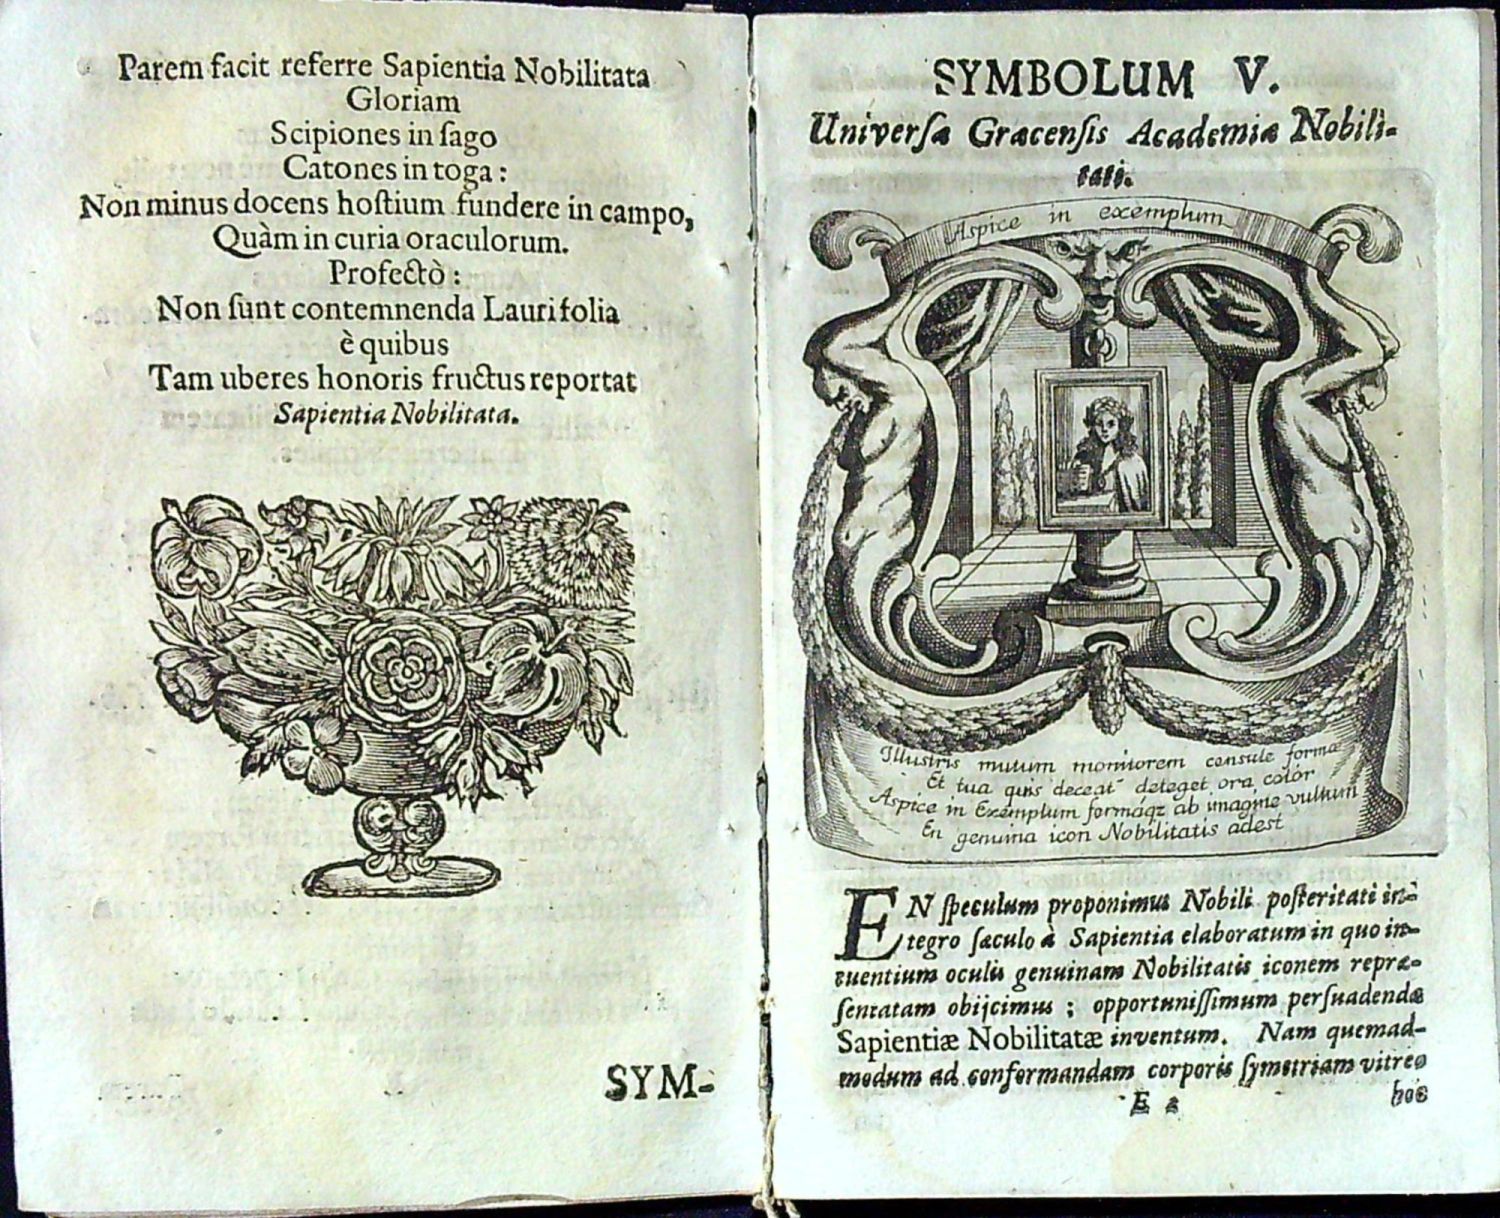 Parem facit referre Sapientia Nobilitata
Gloriam
Scipiones in ſago
Catones in toga :
Non minus docens hoſtium fundere in campo,
Quàm in curia oraculorum.
Profectò :
Non ſunt contemnenda Lauri folia
è quibus
Tam uberes honoris fructus reportat
Sapientia Nobilitata.
SYM-
SYMBOLUM V.
Univerſæ Græcenſis Academiæ Nobili-
tati.
Aspice in exemplum
Illustris mutum monitorem consule formæ
Et tua quis deceat deteget ora color
Aspice in Exemplum formáqz ab imagine vultum
En genuina icon Nobilitatis adest
EN ſpeculum proponimus Nobili poſteritati in-
tegro ſæculo à Sapientia elaboratum in quo in-
tuentium oculis genuinam Nobilitatis iconem repræ-
ſentatam obijcimus ; opportuniſſimum perſuadendæ
Sapientiæ Nobilitatæ inventum. Nam quemad-
modum ad conformandam corporis ſymetriam vitreo
E 2
hoc